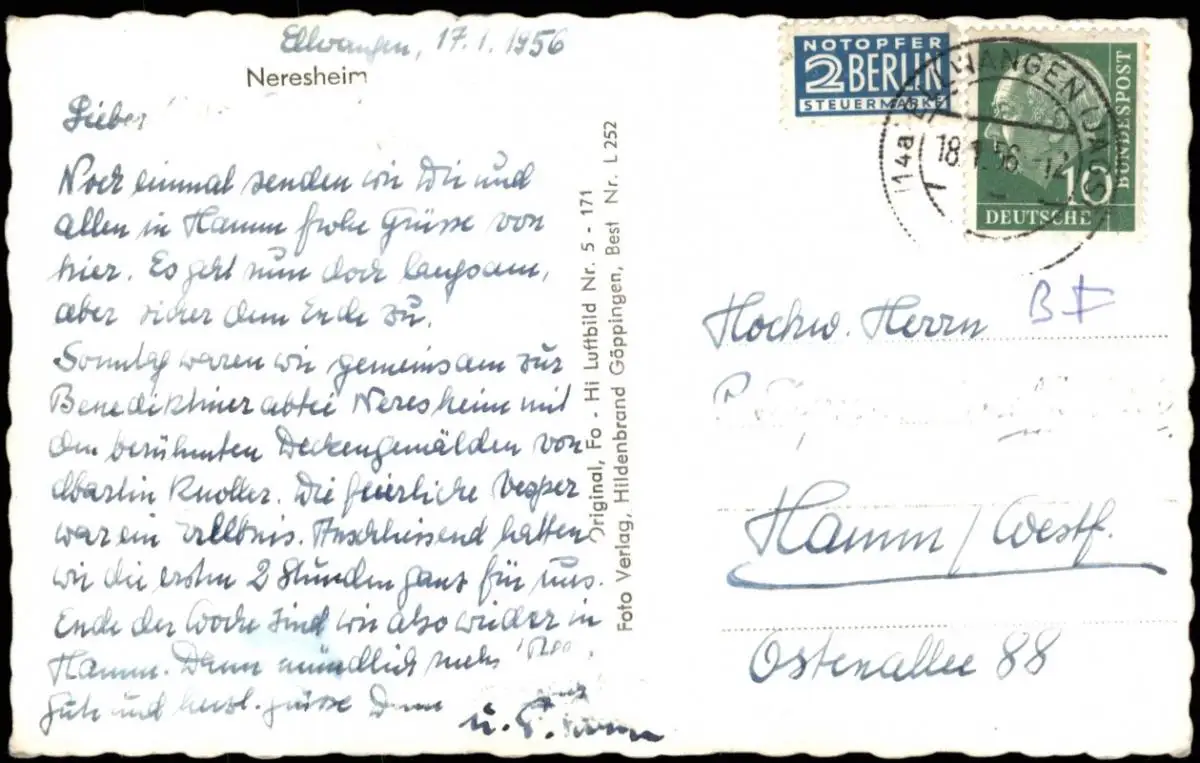 Ellwangen, 17.1.1956
Neresheim
Lieber
Noch einmal senden wir Dir und
allen in Hamm frohe Grüsse von
hier. Es geht nun doch langsam,
aber sicher dem Ende zu.
Sonntag waren wir gemeinsam zur
Benediktinerabtei Neresheim mit
den berühmten Deckengemälden von
Martin Knoller. Die feierliche Vesper
war ein Erlebnis. Anschliessend hatten
wir die ersten 2 Stunden ganz für uns.
Ende der Woche sind wir also wieder in
Hamm. Dann mündlich mehr.
Gute und herzl. Grüsse Dein
u.
Original, Fo - Hi Luftbild Nr. 5 - 171
Foto Verlag, Hildenbrand Göppingen, Best Nr. L 252
NOTOPFER
2 BERLIN
STEUERMARKE
(14a) ELLWANGEN (JAGST)
18.1.56.-12
10
DEUTSCHE
BUNDESPOST
BF
Hochw. Herrn
Hamm/Westf.
Ostenallee 88